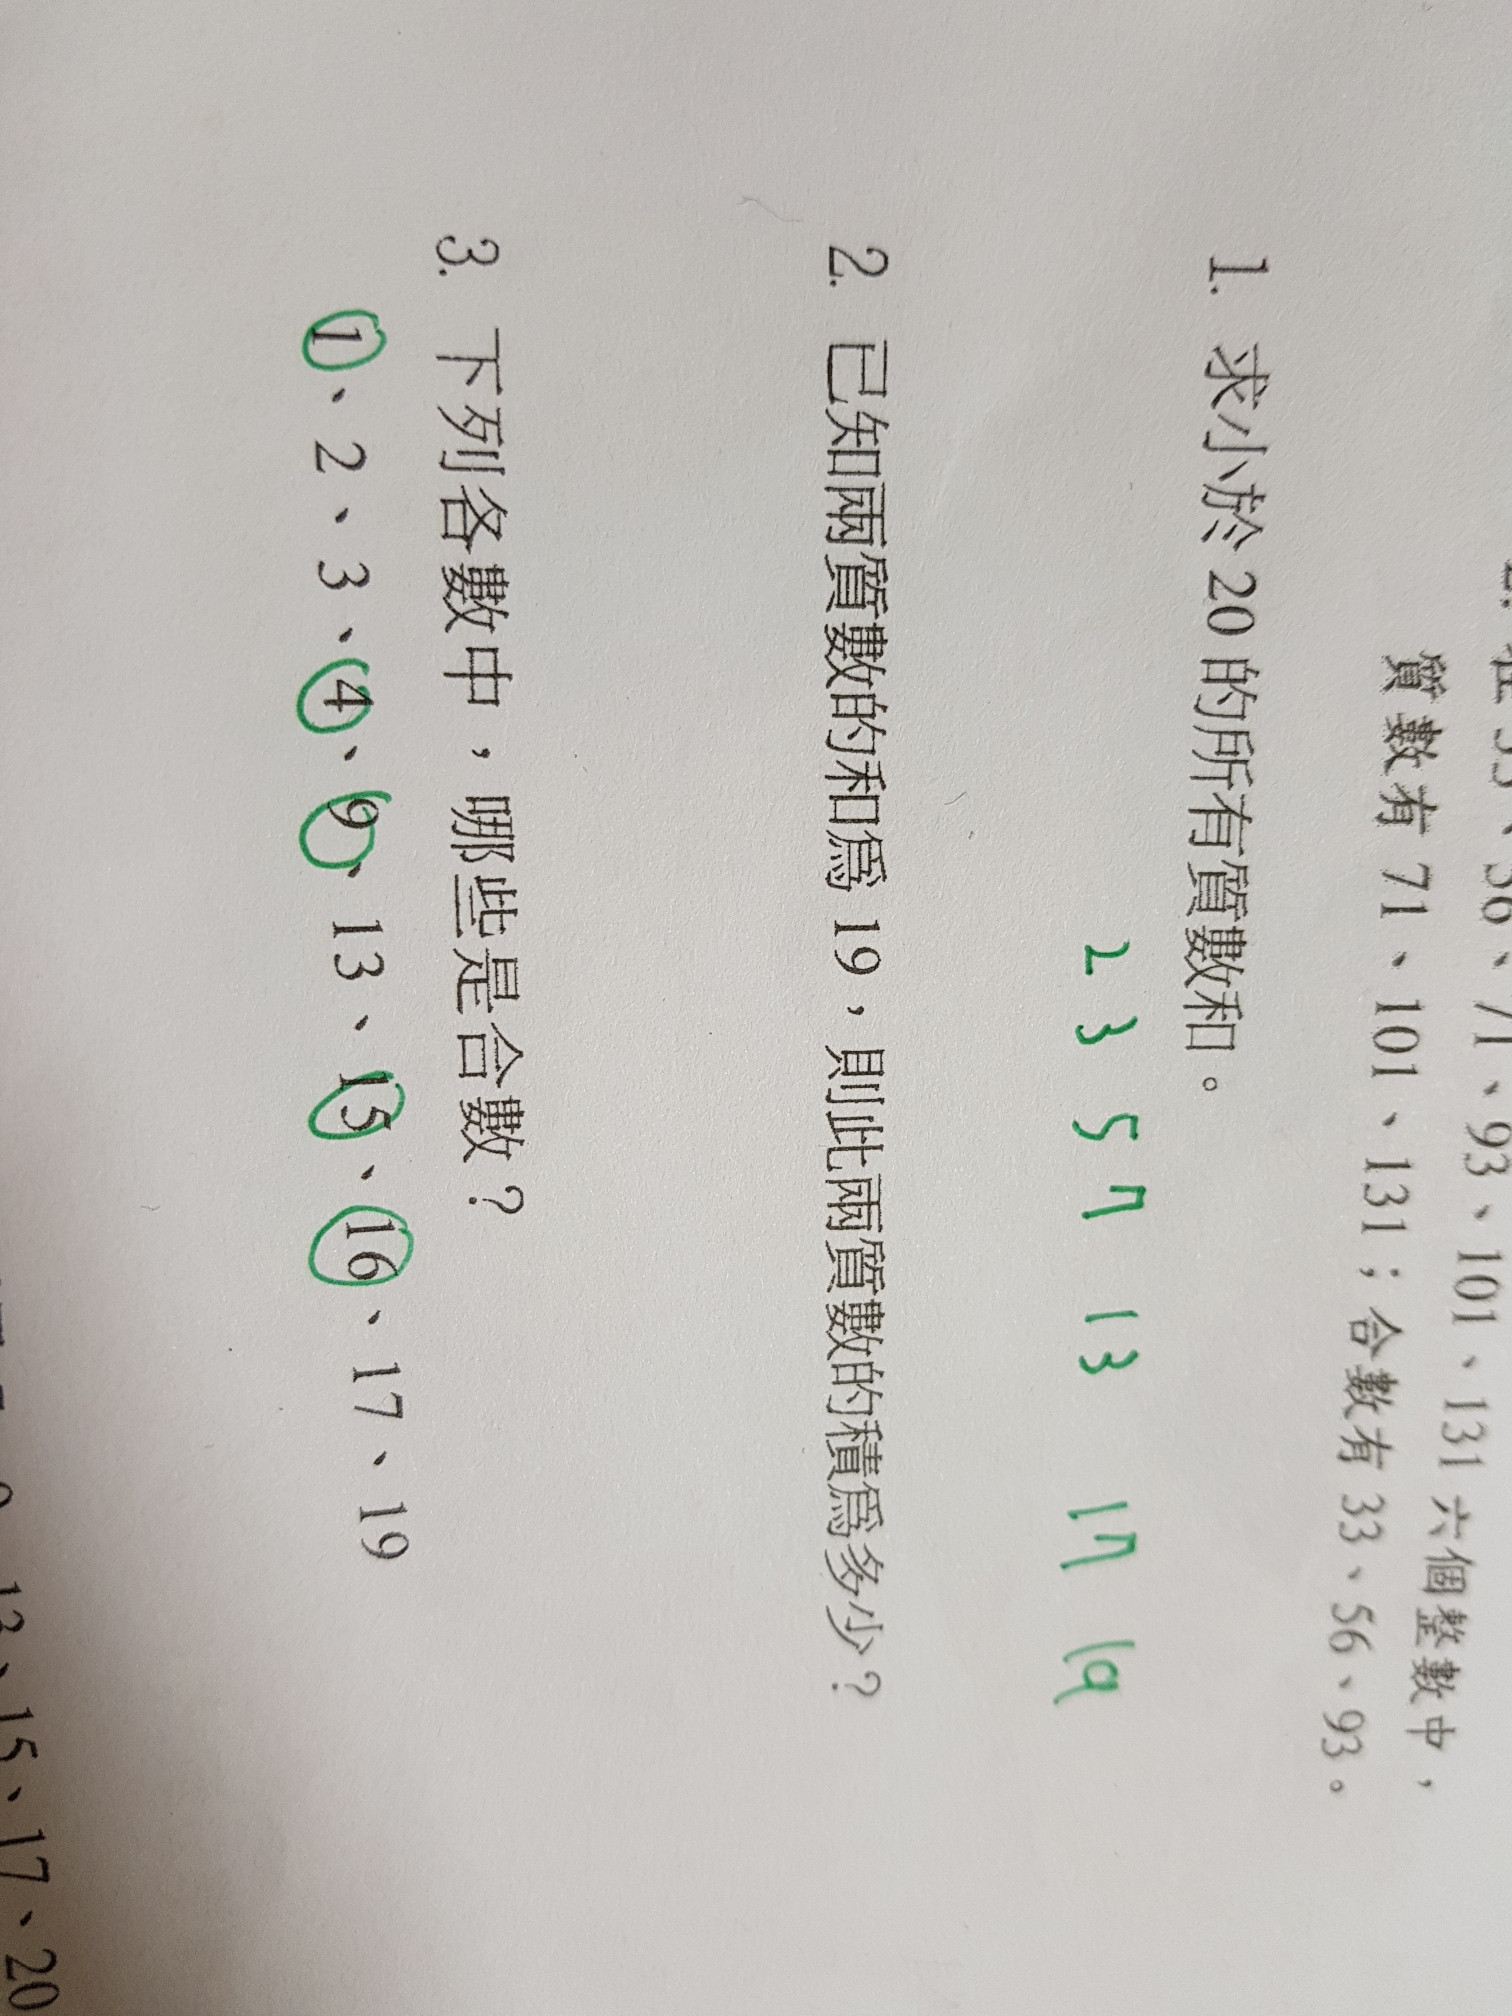 56、71、93、101、131 六個整數中，
質數有 71、101、131；合數有 33、56、93。
1. 求小於 20 的所有質數和。
2 3 5 7 13 17 19
2. 已知兩質數的和為 19，則此兩質數的積為多少？
3. 下列各數中，哪些是合數？
1、2、3、4、9、13、15、16、17、19
13、15、17、20